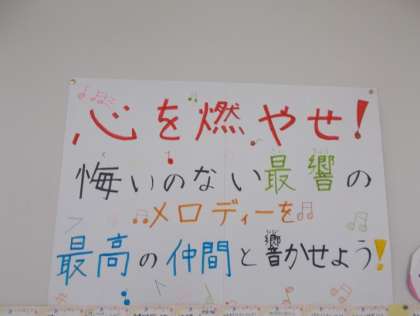 心を燃やせ!
悔いのない最響の
メロディーを
最高の仲間と響かせよう!